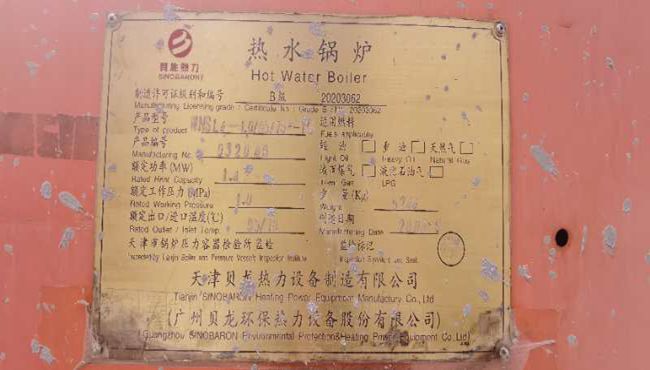 热水锅炉
Hot Water Boiler
贝龙热力
SINOBARON
制造许可证级别和编号 B级 20203062
Manufacturing Licensing grade / Certificate No.: Grade B 20203062
产品型号
Type of product
适用燃料
Fuels applicable
产品编号
Manufacturing No.
轻油 重油 天然气
Light Oil Heavy Oil Natural Gas
额定功率(MW)
Rated Heat Capacity 1.4
液化石油气
LPG
额定工作压力(MPa)
Rated Working Pressure 1.0
Weight
额定出口/进口温度(℃)
Rated Outlet / Inlet Temp.
制造日期
Manufacturing Date
天津市锅炉压力容器检验所监检
Inspected by Tianjin Boiler and Pressure Vessels Inspection Institute
监检标记
天津贝龙热力设备制造有限公司
Tianjin SINOBARON Heating Power Equipment Manufactury Co.,Ltd
(广州贝龙环保热力设备股份有限公司)
(Guangzhou SINOBARON Environmental Protection&Heating Power Equipment Co.,Ltd.)